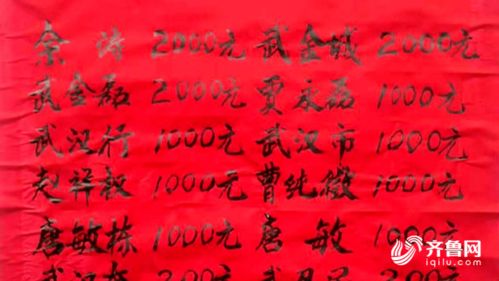 余涛 2000元 武金城 2000元
武金磊 2000元 贾永磊 1000元
武汉行 1000元 武汉市 1000元
赵祥叙 1000元 曹纯 1000元
唐敏栋 1000元 唐敏 1000元
武汉 200元 武 200元
齐鲁网
iqilu.com